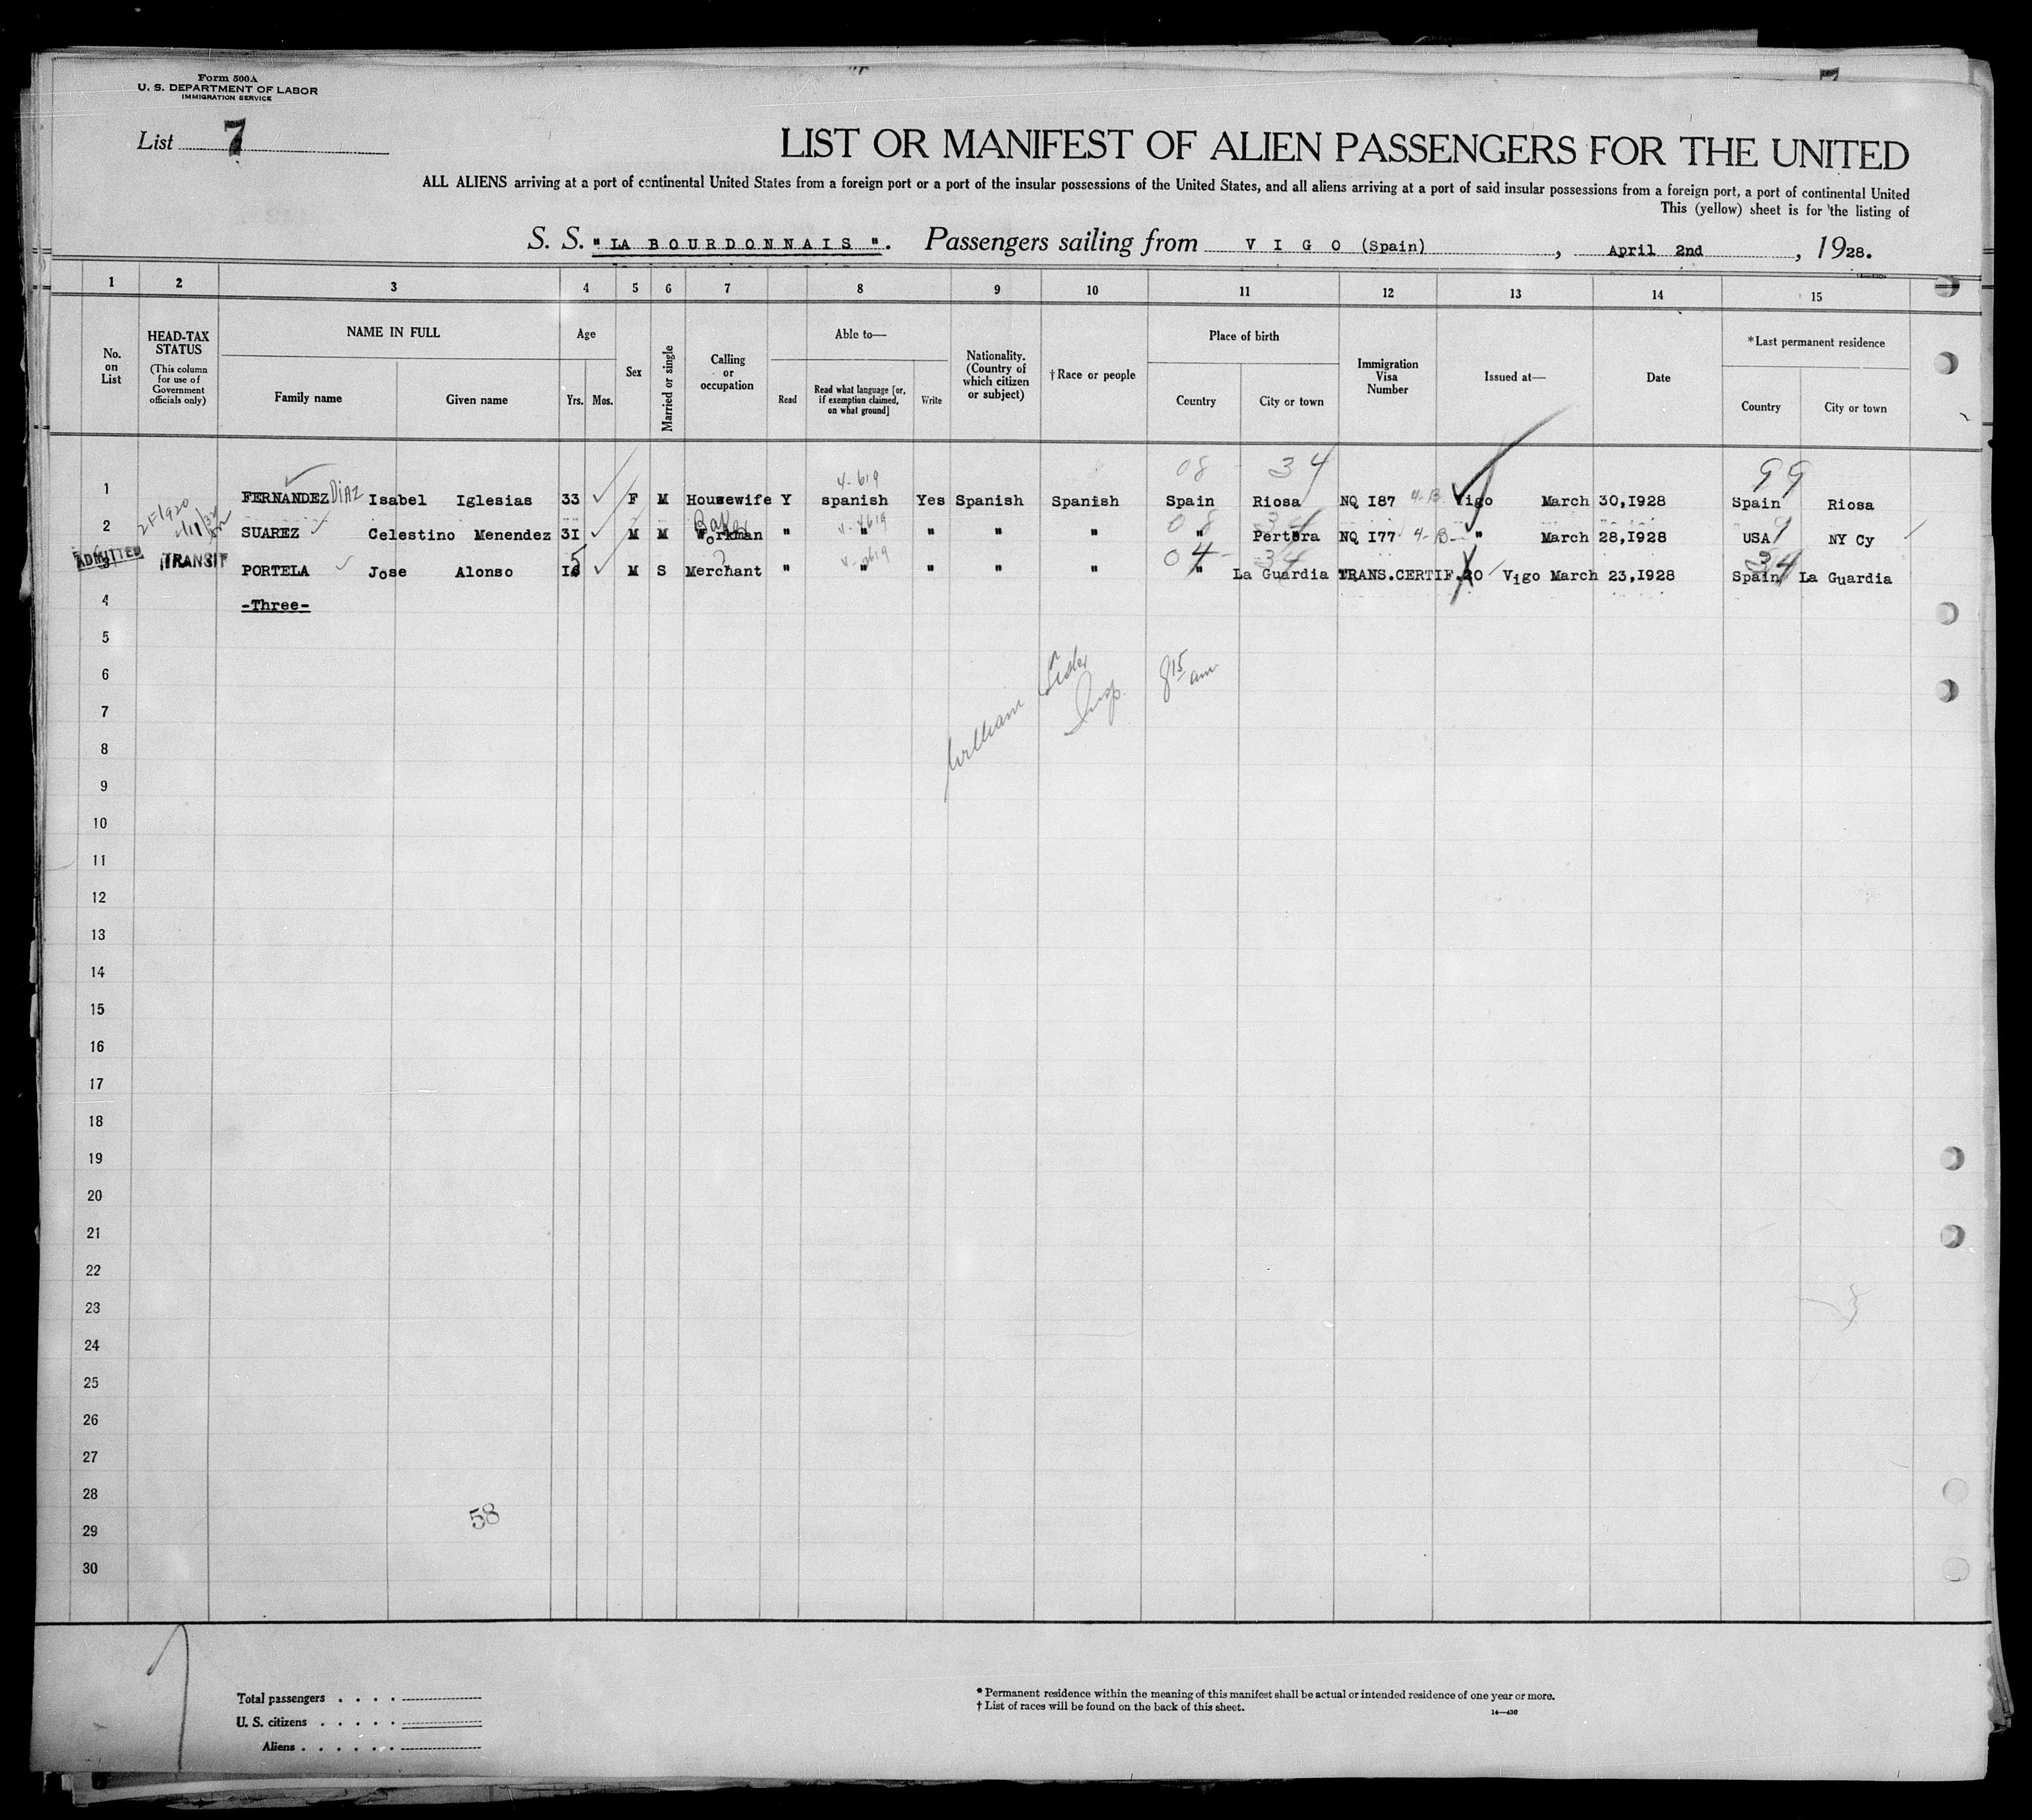 7
Form 500A
U. S. DEPARTMENT OF LABOR
IMMIGRATION SERVICE
List 7
LIST OR MANIFEST OF ALIEN PASSENGERS FOR THE UNITED
ALL ALIENS arriving at a port of continental United States from a foreign port or a port of the insular possessions of the United States, and all aliens arriving at a port of said insular possessions from a foreign port, a port of continental United
This (yellow) sheet is for the listing of
S. S. " LA BOURDONNAIS ". Passengers sailing from VIGO (Spain), April 2nd, 1928.
1 2 3 4 5 6 7 8 9 10 11 12 13 14 15
No. on List
HEAD-TAX STATUS
(This column for use of Government officials only)
NAME IN FULL
Family name Given name
Age
Yrs. Mos.
Sex
Married or single
Calling or occupation
Able to—
Read
Read what language [or, if exemption claimed, on what ground]
Write
Nationality. (Country of which citizen or subject)
† Race or people
Place of birth
Country City or town
Immigration Visa Number
Issued at—
Date
* Last permanent residence
Country City or town
4-619 08 34 99
1 FERNANDEZ DIAZ Isabel Iglesias 33 F M Housewife Y spanish Yes Spanish Spanish Spain Riosa NQ I87 4-B Vigo March 30,I928 Spain Riosa
Baker 08 34
2 SUAREZ Celestino Menendez 3I M M Workman " " " " " " Pertera NQ I77 4-B " March 28,I928 USA NY Cy
04 34 34
3 ADMITTED TRANSIT PORTELA Jose Alonso I6 5 M S Merchant " " " " " " La Guardia TRANS.CERTIF.20 Vigo March 23,I928 Spain La Guardia
4 -Three-
5
6
William Insp. 8 15 am
7
8
9
10
11
12
13
14
15
16
17
18
19
20
21
22
23
24
25
26
27
28
58
29
30
Total passengers
U. S. citizens
Aliens
* Permanent residence within the meaning of this manifest shall be actual or intended residence of one year or more.
† List of races will be found on the back of this sheet.
14—430